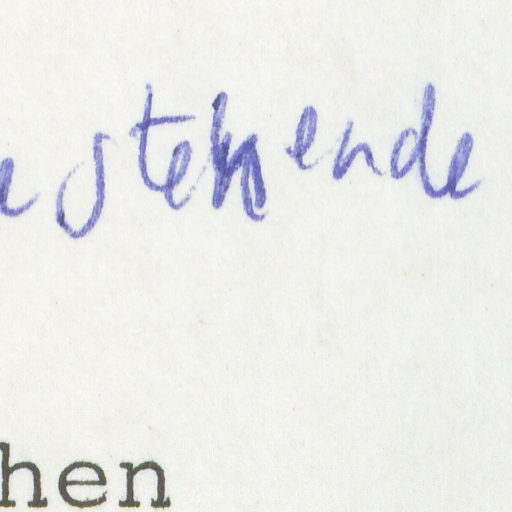 e stehende
hen